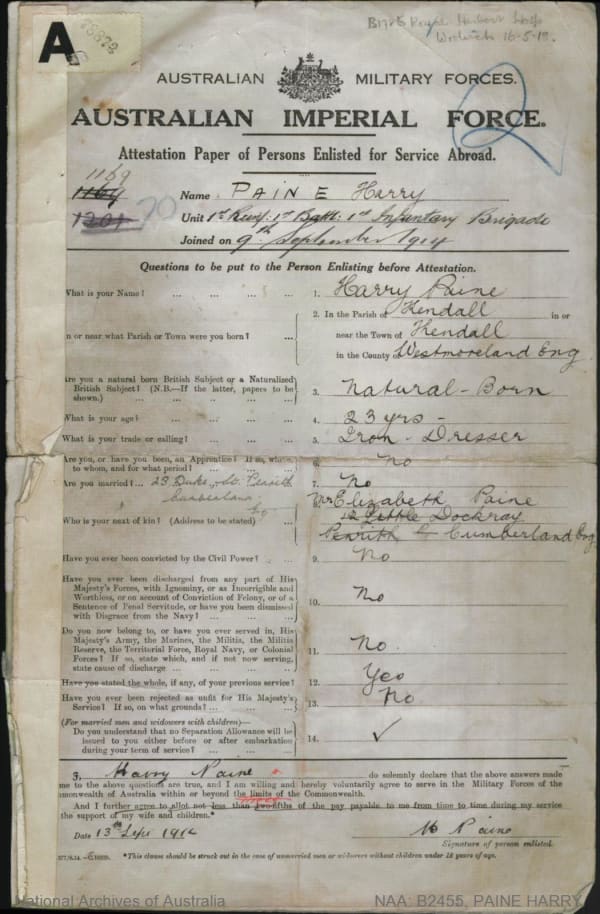 A
16-5-19.
2
AUSTRALIAN MILITARY FORCES.
AUSTRALIAN IMPERIAL FORCE.
Attestation Paper of Persons Enlisted for Service Abroad.
1169
1164
1201
70
Name PAINE Harry
Unit 1st Reinf: 1st Batt: 1st Infantary Brigade
Joined on 9th September 1914
Questions to be put to the Person Enlisting before Attestation.
What is your Name? ... ... ... 1. Harry Paine
2. In the Parish of Kendall in or
n or near what Parish or Town were you born? ... near the Town of Kendall
in the County of Westmoreland Eng
Are you a natural born British Subject or a Naturalized
British Subject? (N.B.—If the latter, papers to be
shown.) ... ... ... ... 3. Natural-Born
What is your age? ... ... ... ... 4. 23 yrs -
What is your trade or calling? ... ... ... 5. Iron-Dresser
Are you, or have you been, an Apprentice? If so, where,
to whom, and for what period? ... ... 6. no
Are you married? ... 7. No
23 Duke St Penrith
Cumberland
8. Mrs Elizabeth Paine
12 Little Dockray
Who is your next of kin? (Address to be stated) ...
Penrith Cumberland Eng
Have you ever been convicted by the Civil Power? ... 9. No
Have you ever been discharged from any part of His
Majesty's Forces, with Ignominy, or as Incorrigible and
Worthless, or on account of Conviction of Felony, or of a
Sentence of Penal Servitude, or have you been dismissed
with Disgrace from the Navy? ... ... 10. No
Do you now belong to, or have you ever served in, His
Majesty's Army, the Marines, the Militia, the Militia
Reserve, the Territorial Force, Royal Navy, or Colonial
Forces? If so, state which, and if not now serving,
state cause of discharge ... ... ... 11. No.
Have you stated the whole, if any, of your previous service? 12. Yes
Have you ever been rejected as unfit for His Majesty's
Service? If so, on what grounds? ... ... 13. No
(For married men and widowers with children)—
Do you understand that no Separation Allowance will be
issued to you either before or after embarkation
during your term of service? ... ... ... 14. ✓
I, Harry Paine do solemnly declare that the above answers made
me to the above questions are true, and I am willing and hereby voluntarily agree to serve in the Military Forces of the
mmonwealth of Australia within or beyond the limits of the Commonwealth.
And I further agree to allot not less than two-fifths of the pay payable to me from time to time during my service
the support of my wife and children.*
Date 13th Sept 1914 H Paine
Signature of person enlisted.
*This clause should be struck out in the case of unmarried men or widowers without children under 18 years of age.
National Archives of Australia NAA: B2455, PAINE HARRY